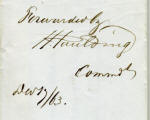 Forwarded by
H Paulding
Commdt
Dec 17/63.